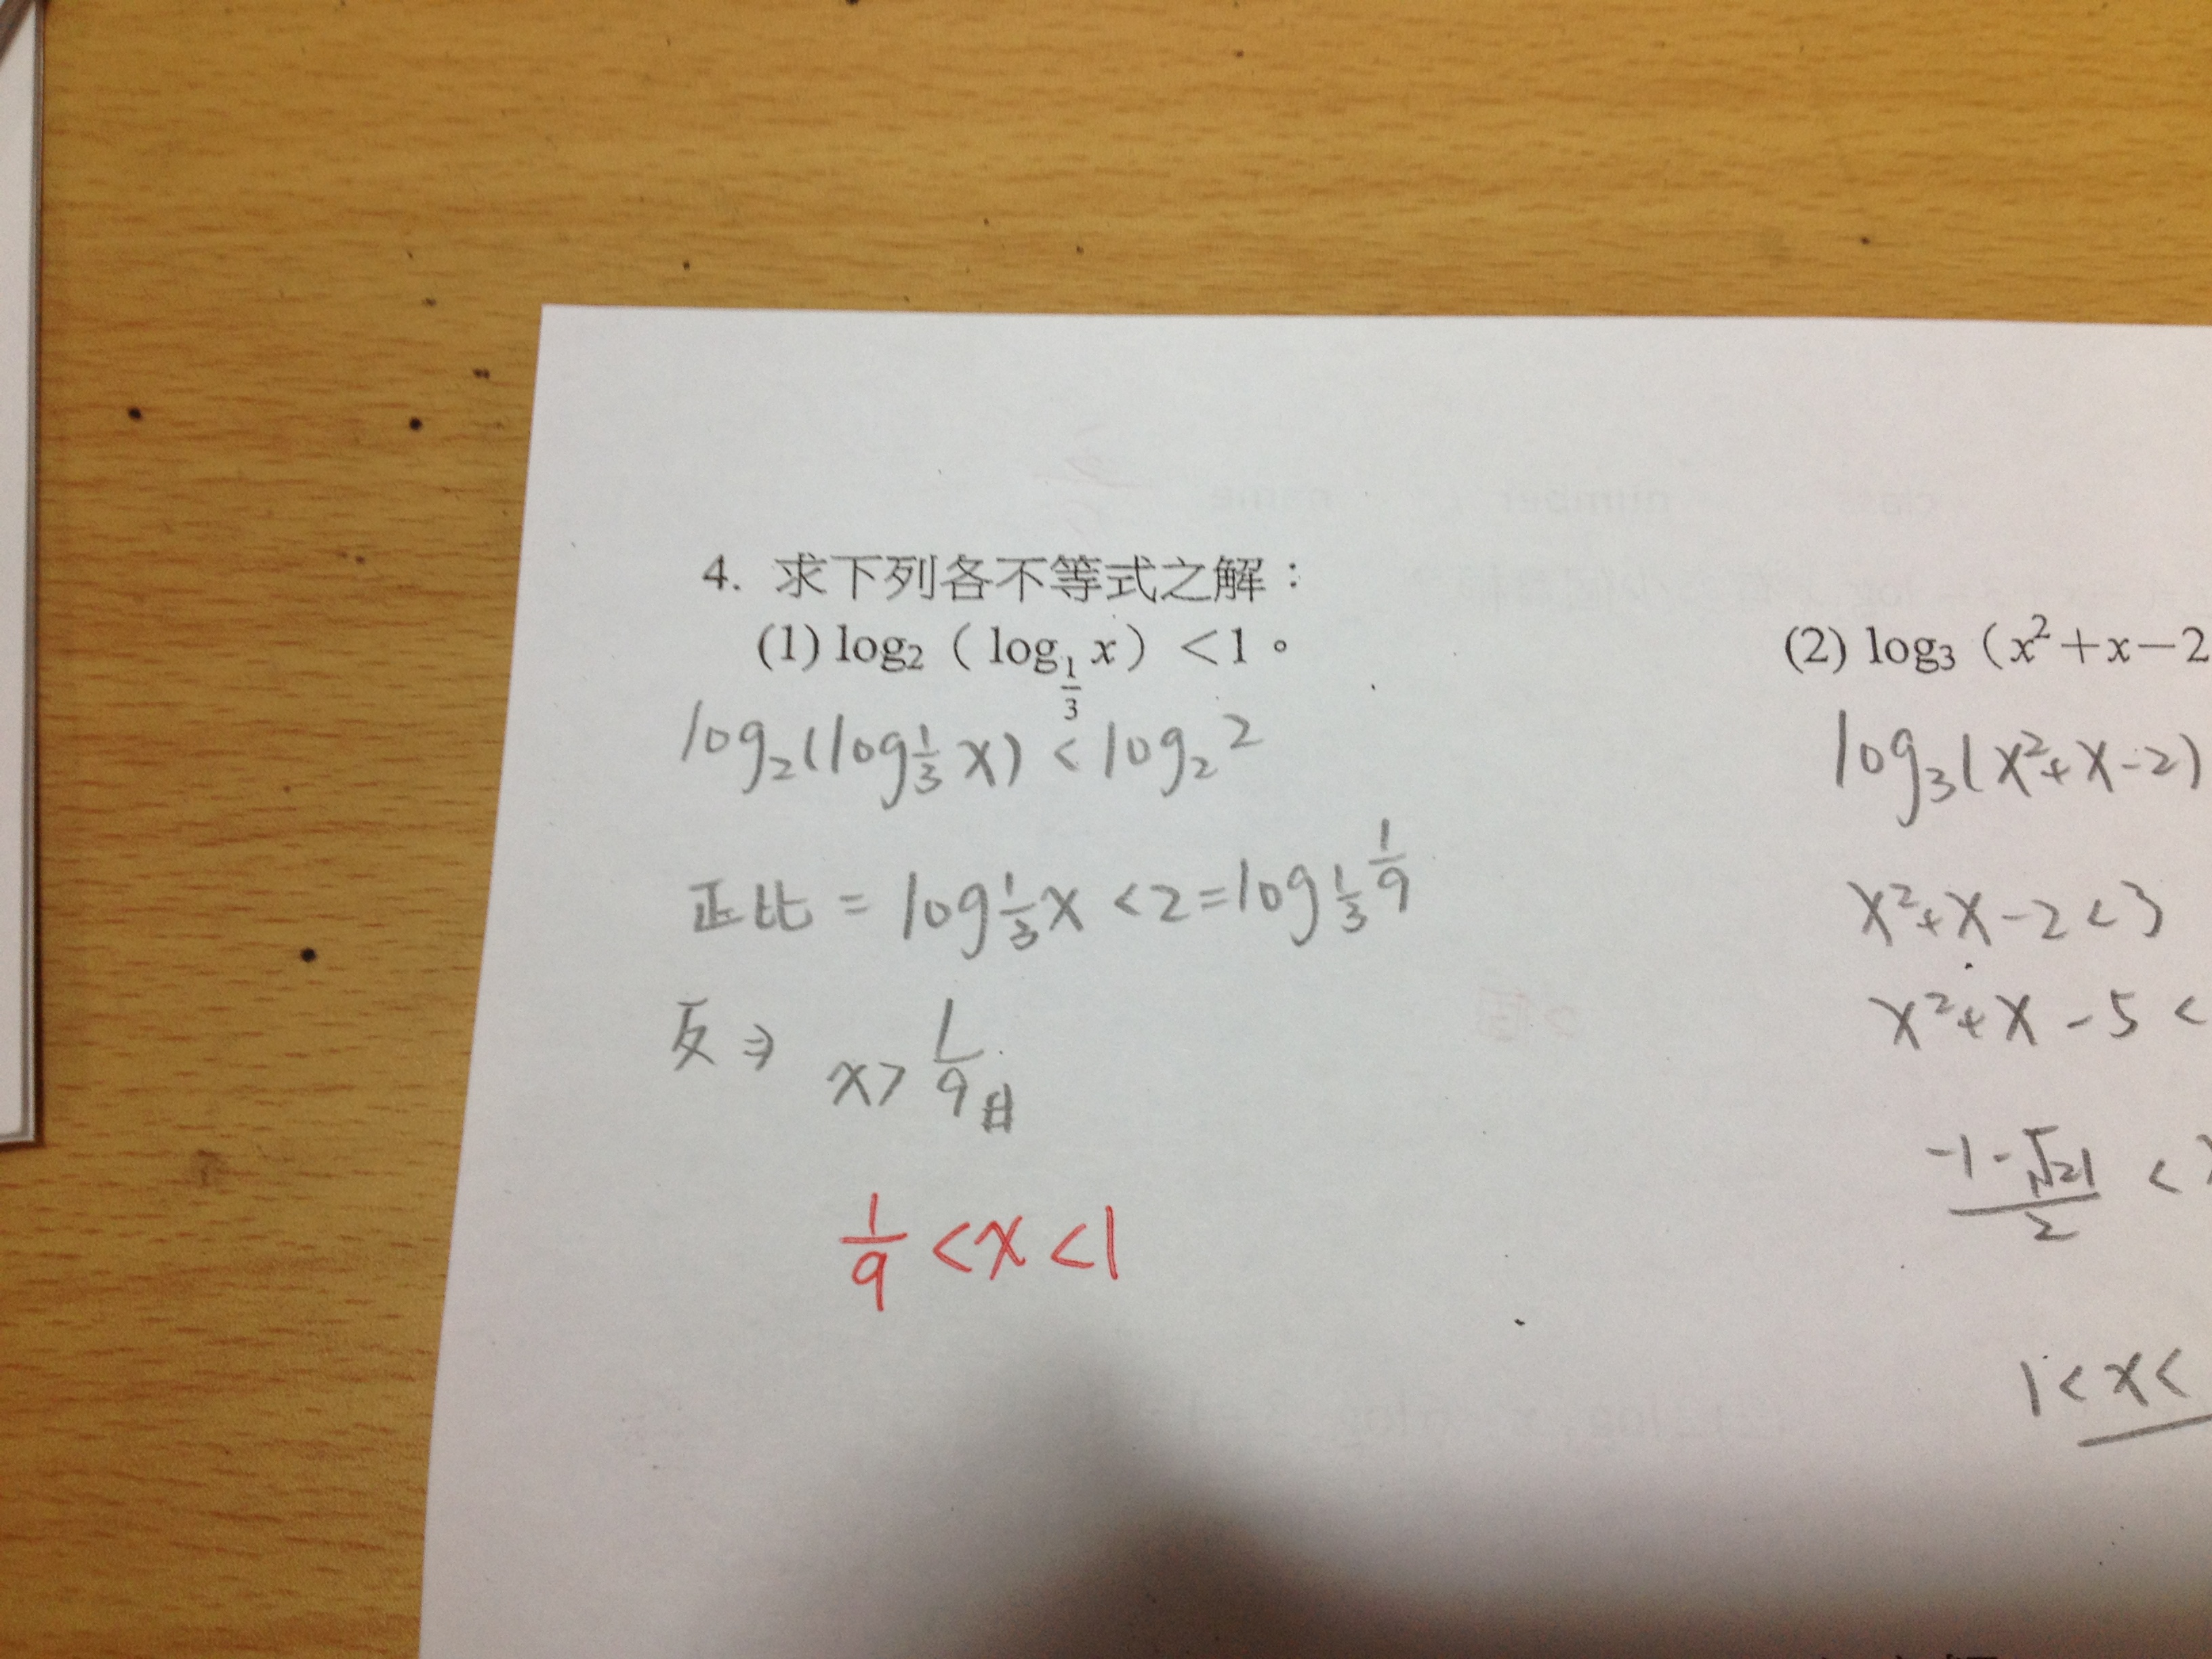 4. 求下列各不等式之解：
(1) log₂（log_{1/3} x）＜1。
log₂(log_{1/3} x) < log₂ 2
正比 = log_{1/3} x < 2 = log_{1/3} 1/9
反 ⇒ x > 1/9 #
1/9 < x < 1
(2) log₃（x²＋x－2
log₃(x²+x-2)
x²+x-2<3
x²+x-5<
(-1-√21)/2 <
1<x<